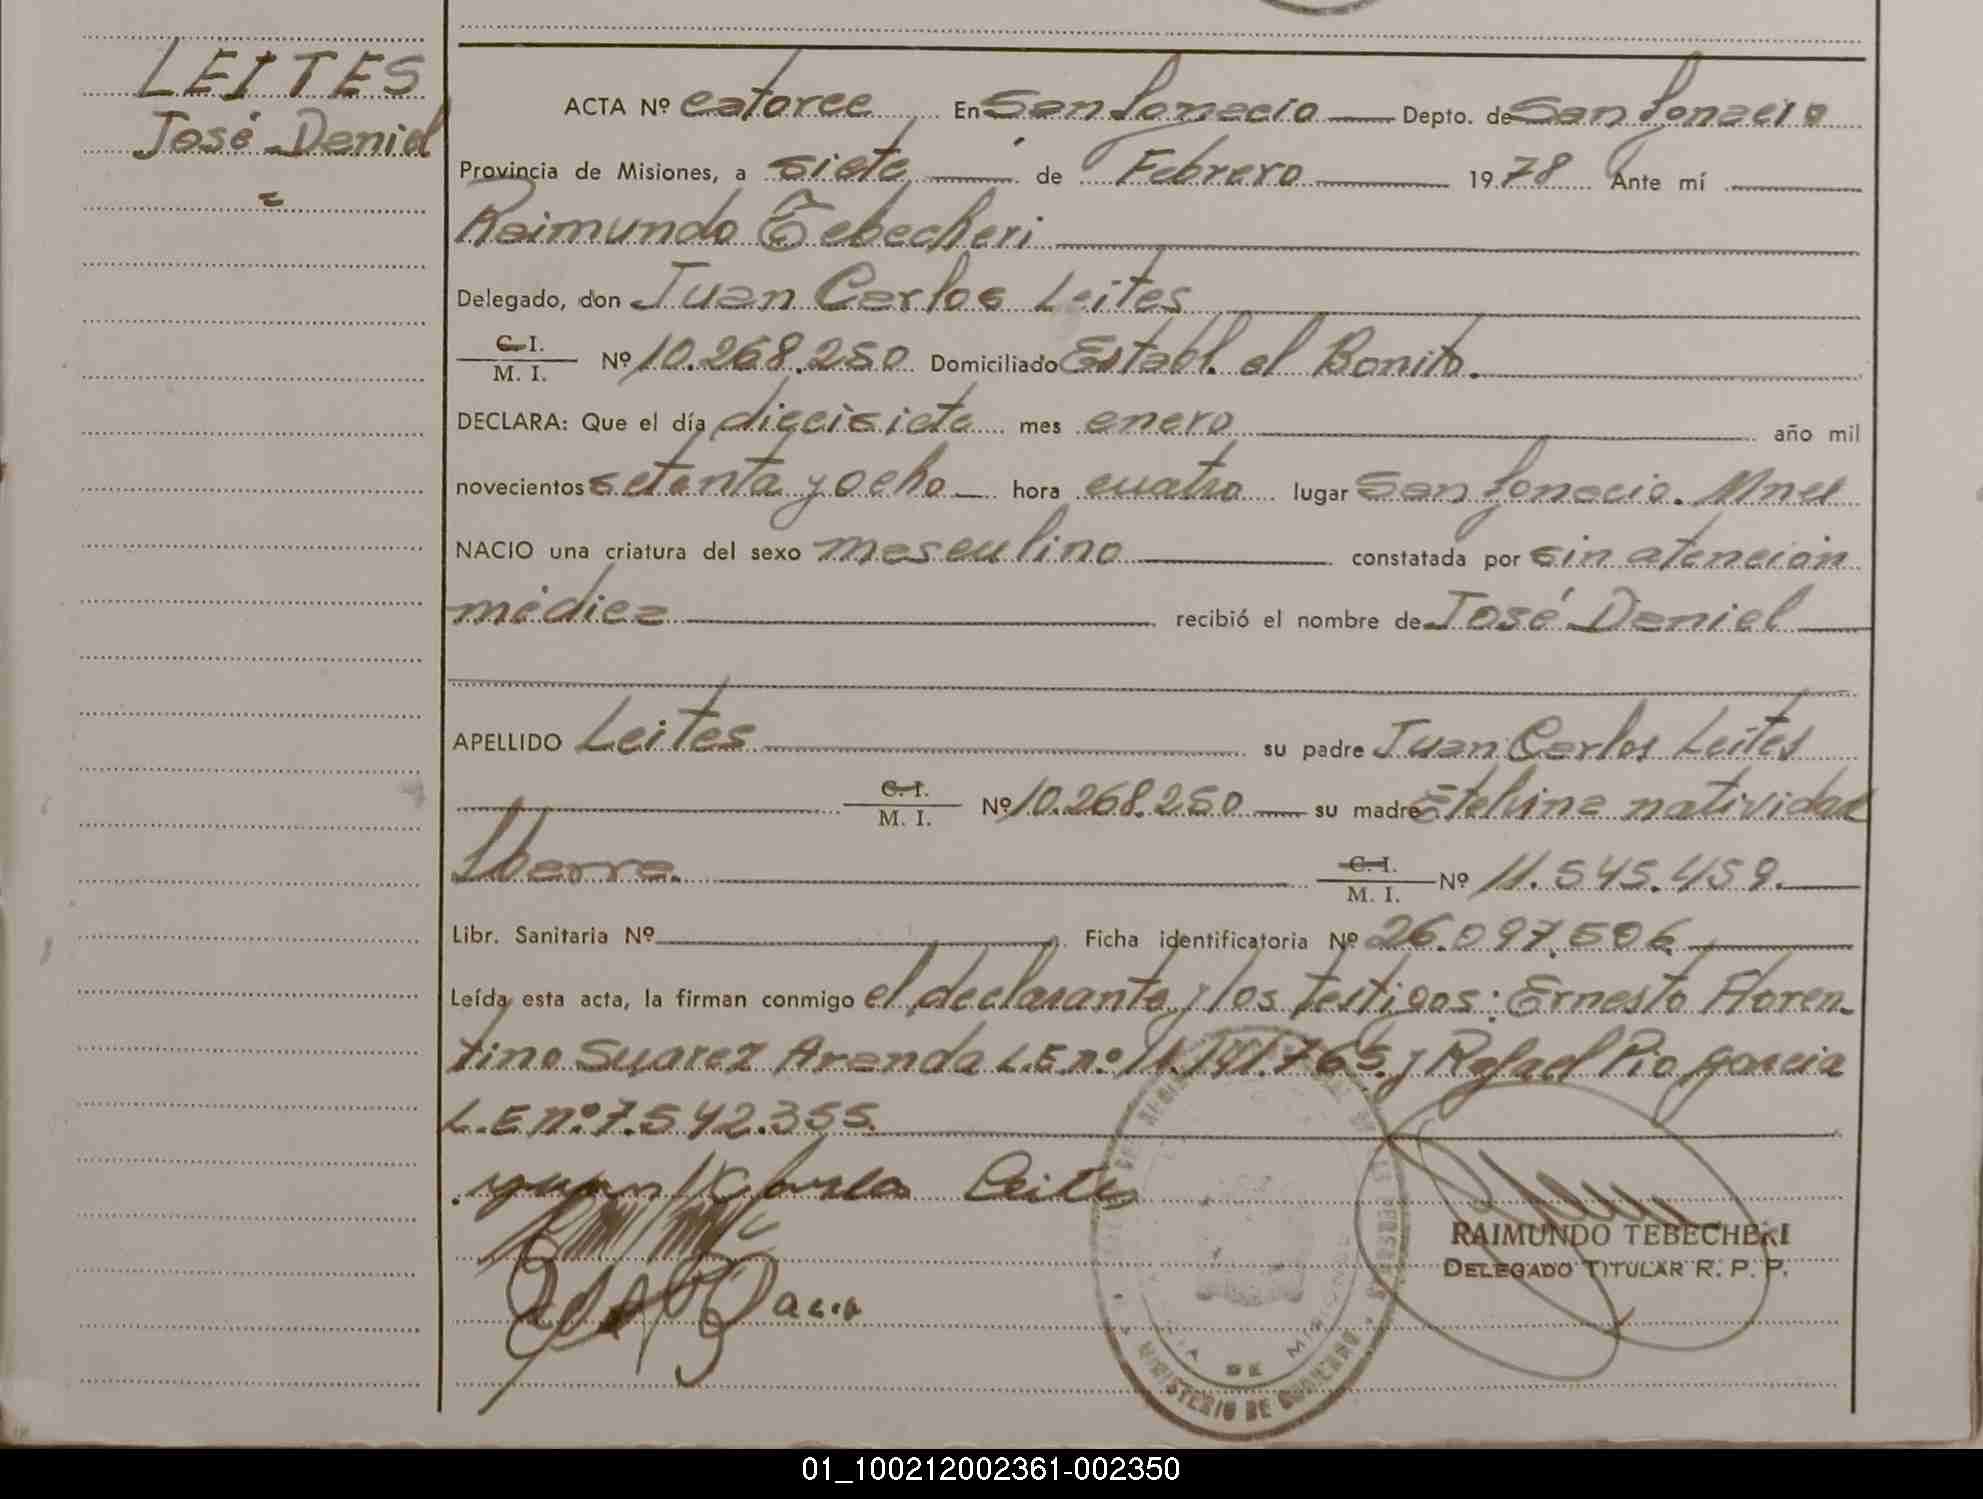 LEITES
José Daniel
ACTA Nº catorce En San Ignacio Depto. de San Ignacio
Provincia de Misiones, a siete de Febrero 1978 Ante mí
Raimundo Tebecheri
Delegado, don Juan Carlos Leites
C. I.
M. I. Nº 10.268.250 Domiciliado Establ. el Bonito.
DECLARA: Que el día diecisiete mes enero año mil
novecientos setenta y ocho hora cuatro lugar San Ignacio. Mnes
NACIO una criatura del sexo masculino constatada por sin atención
médica recibió el nombre de José Daniel
APELLIDO Leites su padre Juan Carlos Leites
C. I.
M. I. Nº 10.268.250 su madre Etelvina natividad
Ibarra. C. I.
M. I. Nº 11.545.459.
Libr. Sanitaria Nº Ficha identificatoria Nº 26.097.506.
Leída esta acta, la firman conmigo el declarante y los testigos: Ernesto Floren-
tino Suarez Aranda L.E.nº 11.191.765. y Rafael Pio garcia
L.E nº 7.542.355.
Juan Carlos Leites
RAIMUNDO TEBECHERI
DELEGADO TITULAR R. P. P.
MINISTERIO DE GOBIERNO
DE MISIONES
01_100212002361-002350